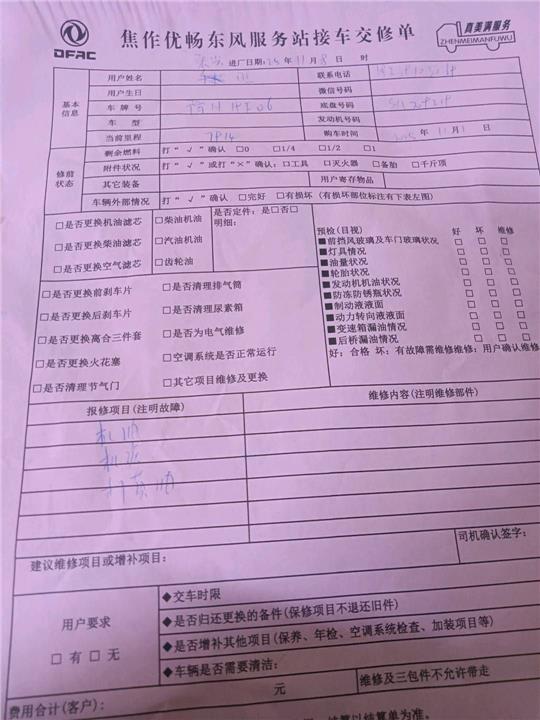 DFAC
焦作优畅东风服务站接车交修单
真美满服务
ZHENMEIMANFUWU
进厂日期:25年11月8日 时
基本信息
用户姓名
联系电话
用户生日
微信号码
车牌号
底盘号码
车型
发动机号码
当前里程 7914
购车时间 年11月1日
修前状态
剩余燃料 打“√”确认 □0 □1/4 □1/2 □1
附件状况 打“√”或打“×”确认:□工具 □灭火器 □备胎 □千斤顶
其它装备
用户寄存物品
车辆外部情况 打“√”确认 □完好 □有损坏(有损坏部位标注有下表左图)
□是否更换机油滤芯 □柴油机油
□是否更换柴油滤芯 □汽油机油
□是否更换空气滤芯 □齿轮油
是否定件:是□否□
明细:
□是否更换前刹车片 □是否清理排气筒
□是否更换后刹车片 □是否清理尿素箱
□是否更换离合三件套 □是否为电气维修
□是否更换火花塞 □空调系统是否正常运行
□是否清理节气门 □其它项目维修及更换
预检(目视) 好 坏 维修
■前挡风玻璃及车门玻璃状况 □ □ □
■灯具情况 □ □ □
■油量状况 □ □ □
■轮胎状况 □ □ □
■发动机机油状况 □ □ □
■防冻防锈瓶状况 □ □ □
■制动液液面 □ □ □
■动力转向液液面 □ □ □
■变速箱漏油情况 □ □ □
■后桥漏油情况 □ □ □
好:合格 坏:有故障需维修维修:用户确认维修
报修项目(注明故障) 维修内容(注明维修部件)
机油
机滤
打黄油
建议维修项目或增补项目:
司机确认签字:
用户要求
□有□无
◆交车时限
◆是否归还更换的备件(保修项目不退还旧件)
◆是否增补其他项目(保养、年检、空调系统检查、加装项目等)
◆车辆是否需要清洁:
费用合计(客户): 元 维修及三包件不允许带走
结算以结算单为准.